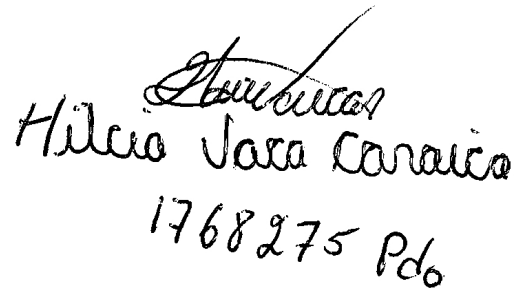 Hilcia Vaca Canaica
1768275 Pdo